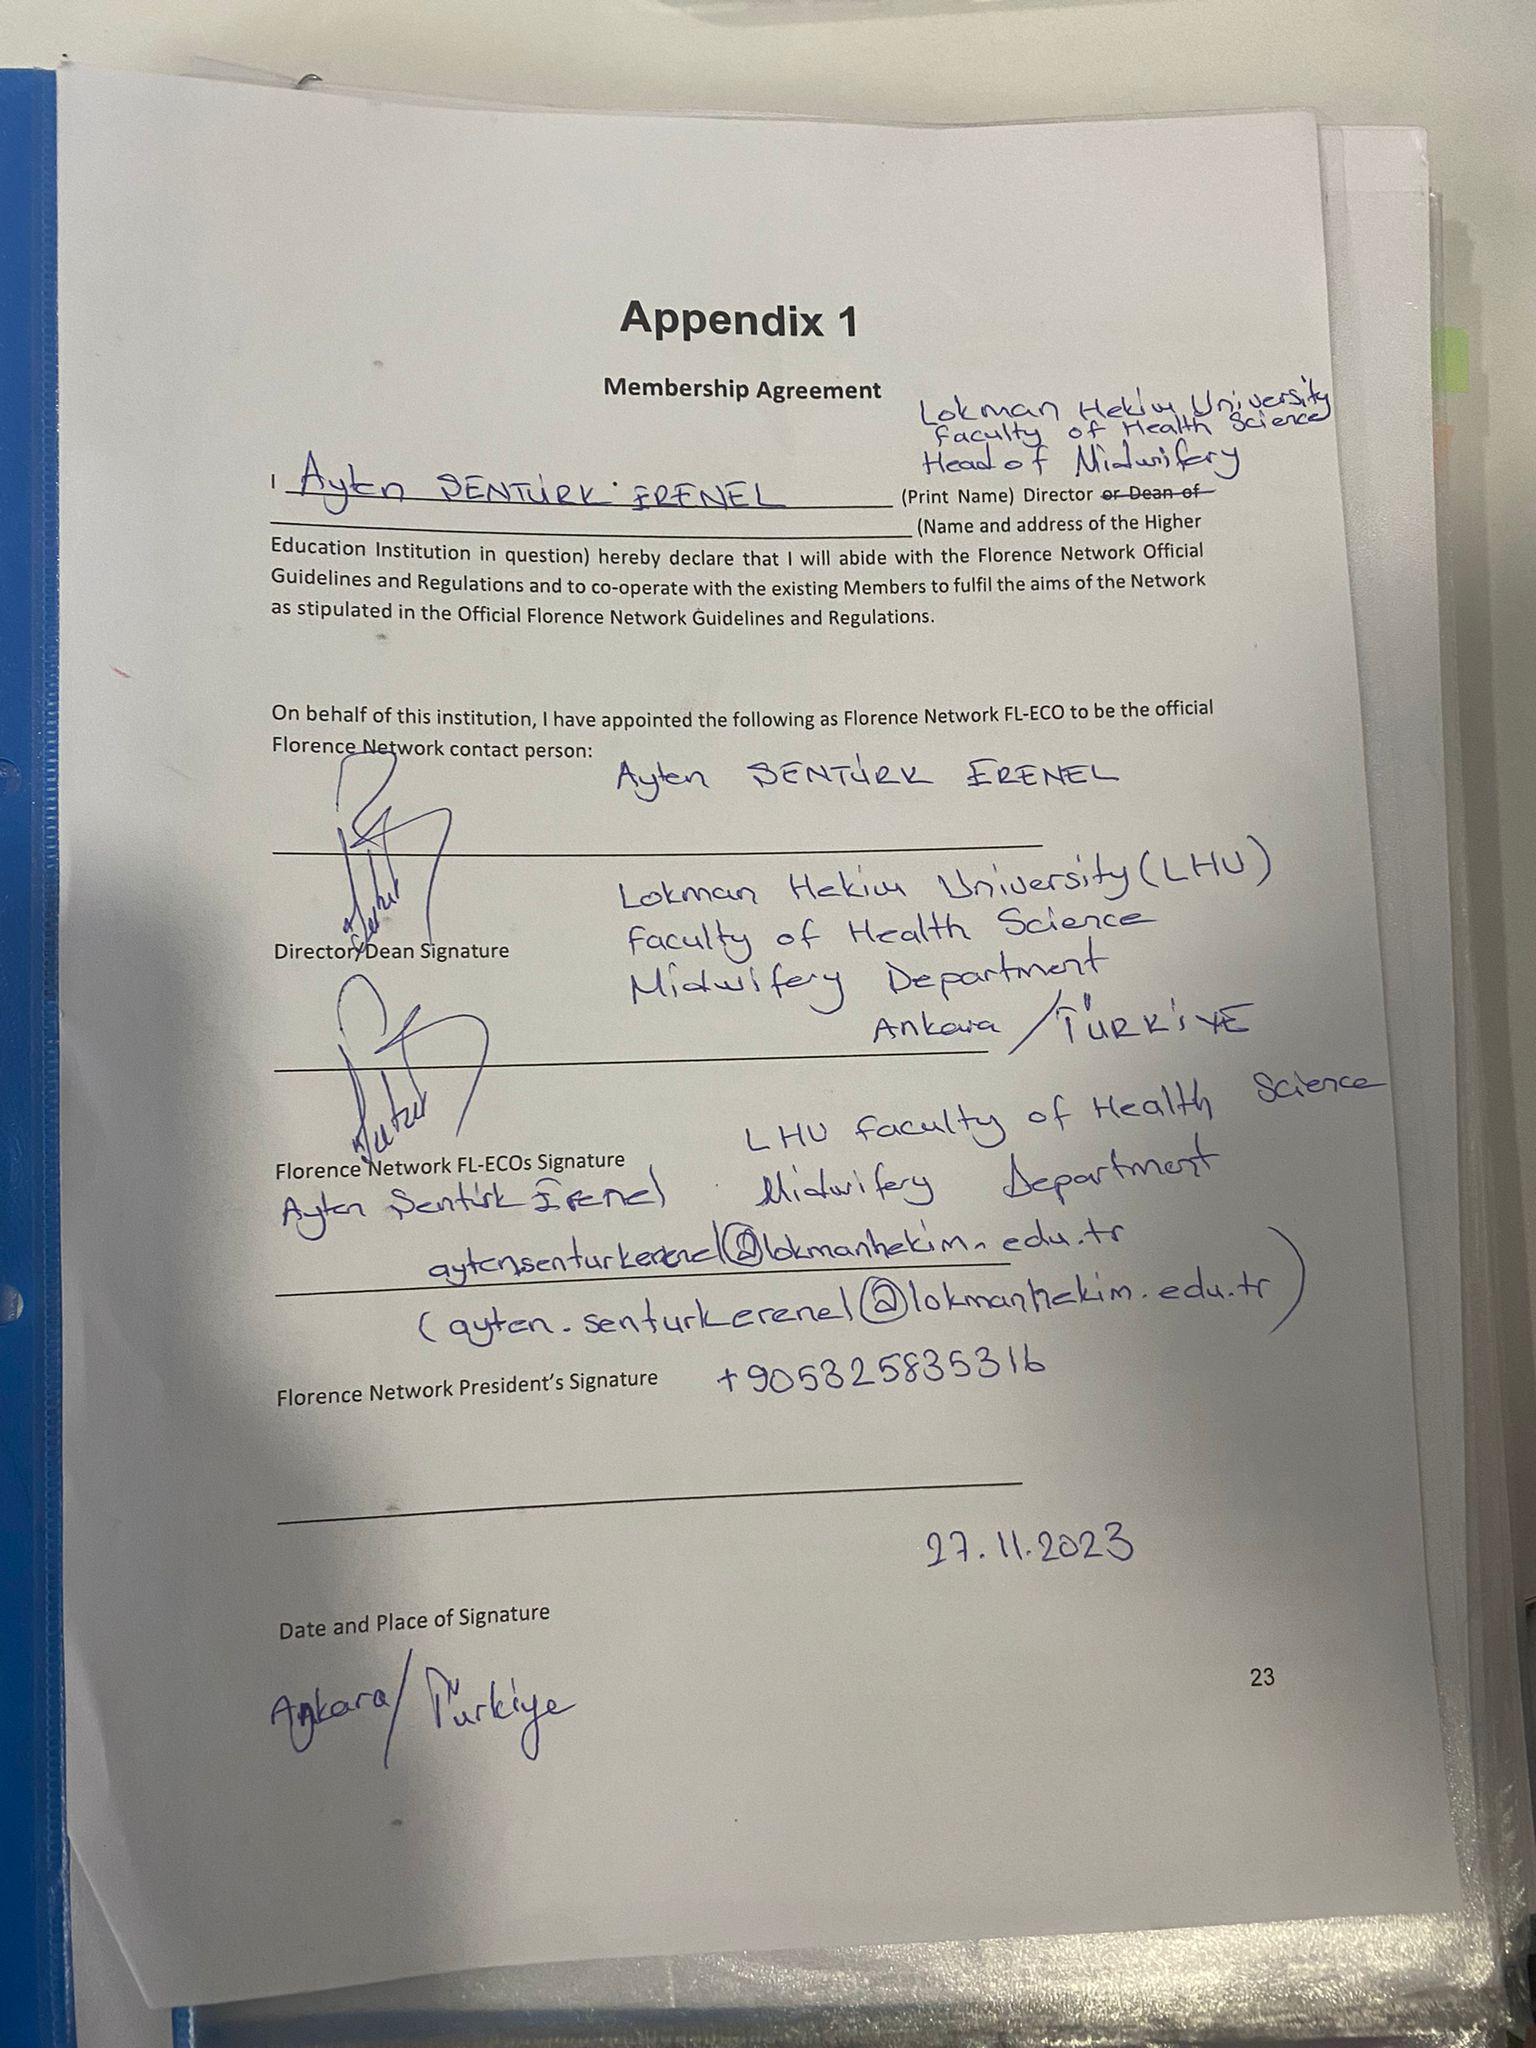 Appendix 1
Membership Agreement
Lokman Hekim University
Faculty of Health Science
Head of Midwifery
I Ayten SENTÜRK ERENEL (Print Name) Director or Dean of
(Name and address of the Higher
Education Institution in question) hereby declare that I will abide with the Florence Network Official
Guidelines and Regulations and to co-operate with the existing Members to fulfil the aims of the Network
as stipulated in the Official Florence Network Guidelines and Regulations.
On behalf of this institution, I have appointed the following as Florence Network FL-ECO to be the official
Florence Network contact person:
Ayten SENTÜRK ERENEL
Lokman Hekim University (LHU)
Faculty of Health Science
Director/Dean Signature
Midwifery Department
Ankara / TÜRKİYE
LHU Faculty of Health Science
Florence Network FL-ECOs Signature
Ayten Sentürk Erenel Midwifery Department
aytensenturkerenel@lokmanhekim.edu.tr
(ayten.senturkerenel@lokmanhekim.edu.tr)
Florence Network President's Signature +905325835316
27.11.2023
Date and Place of Signature
23
Ankara / Türkiye